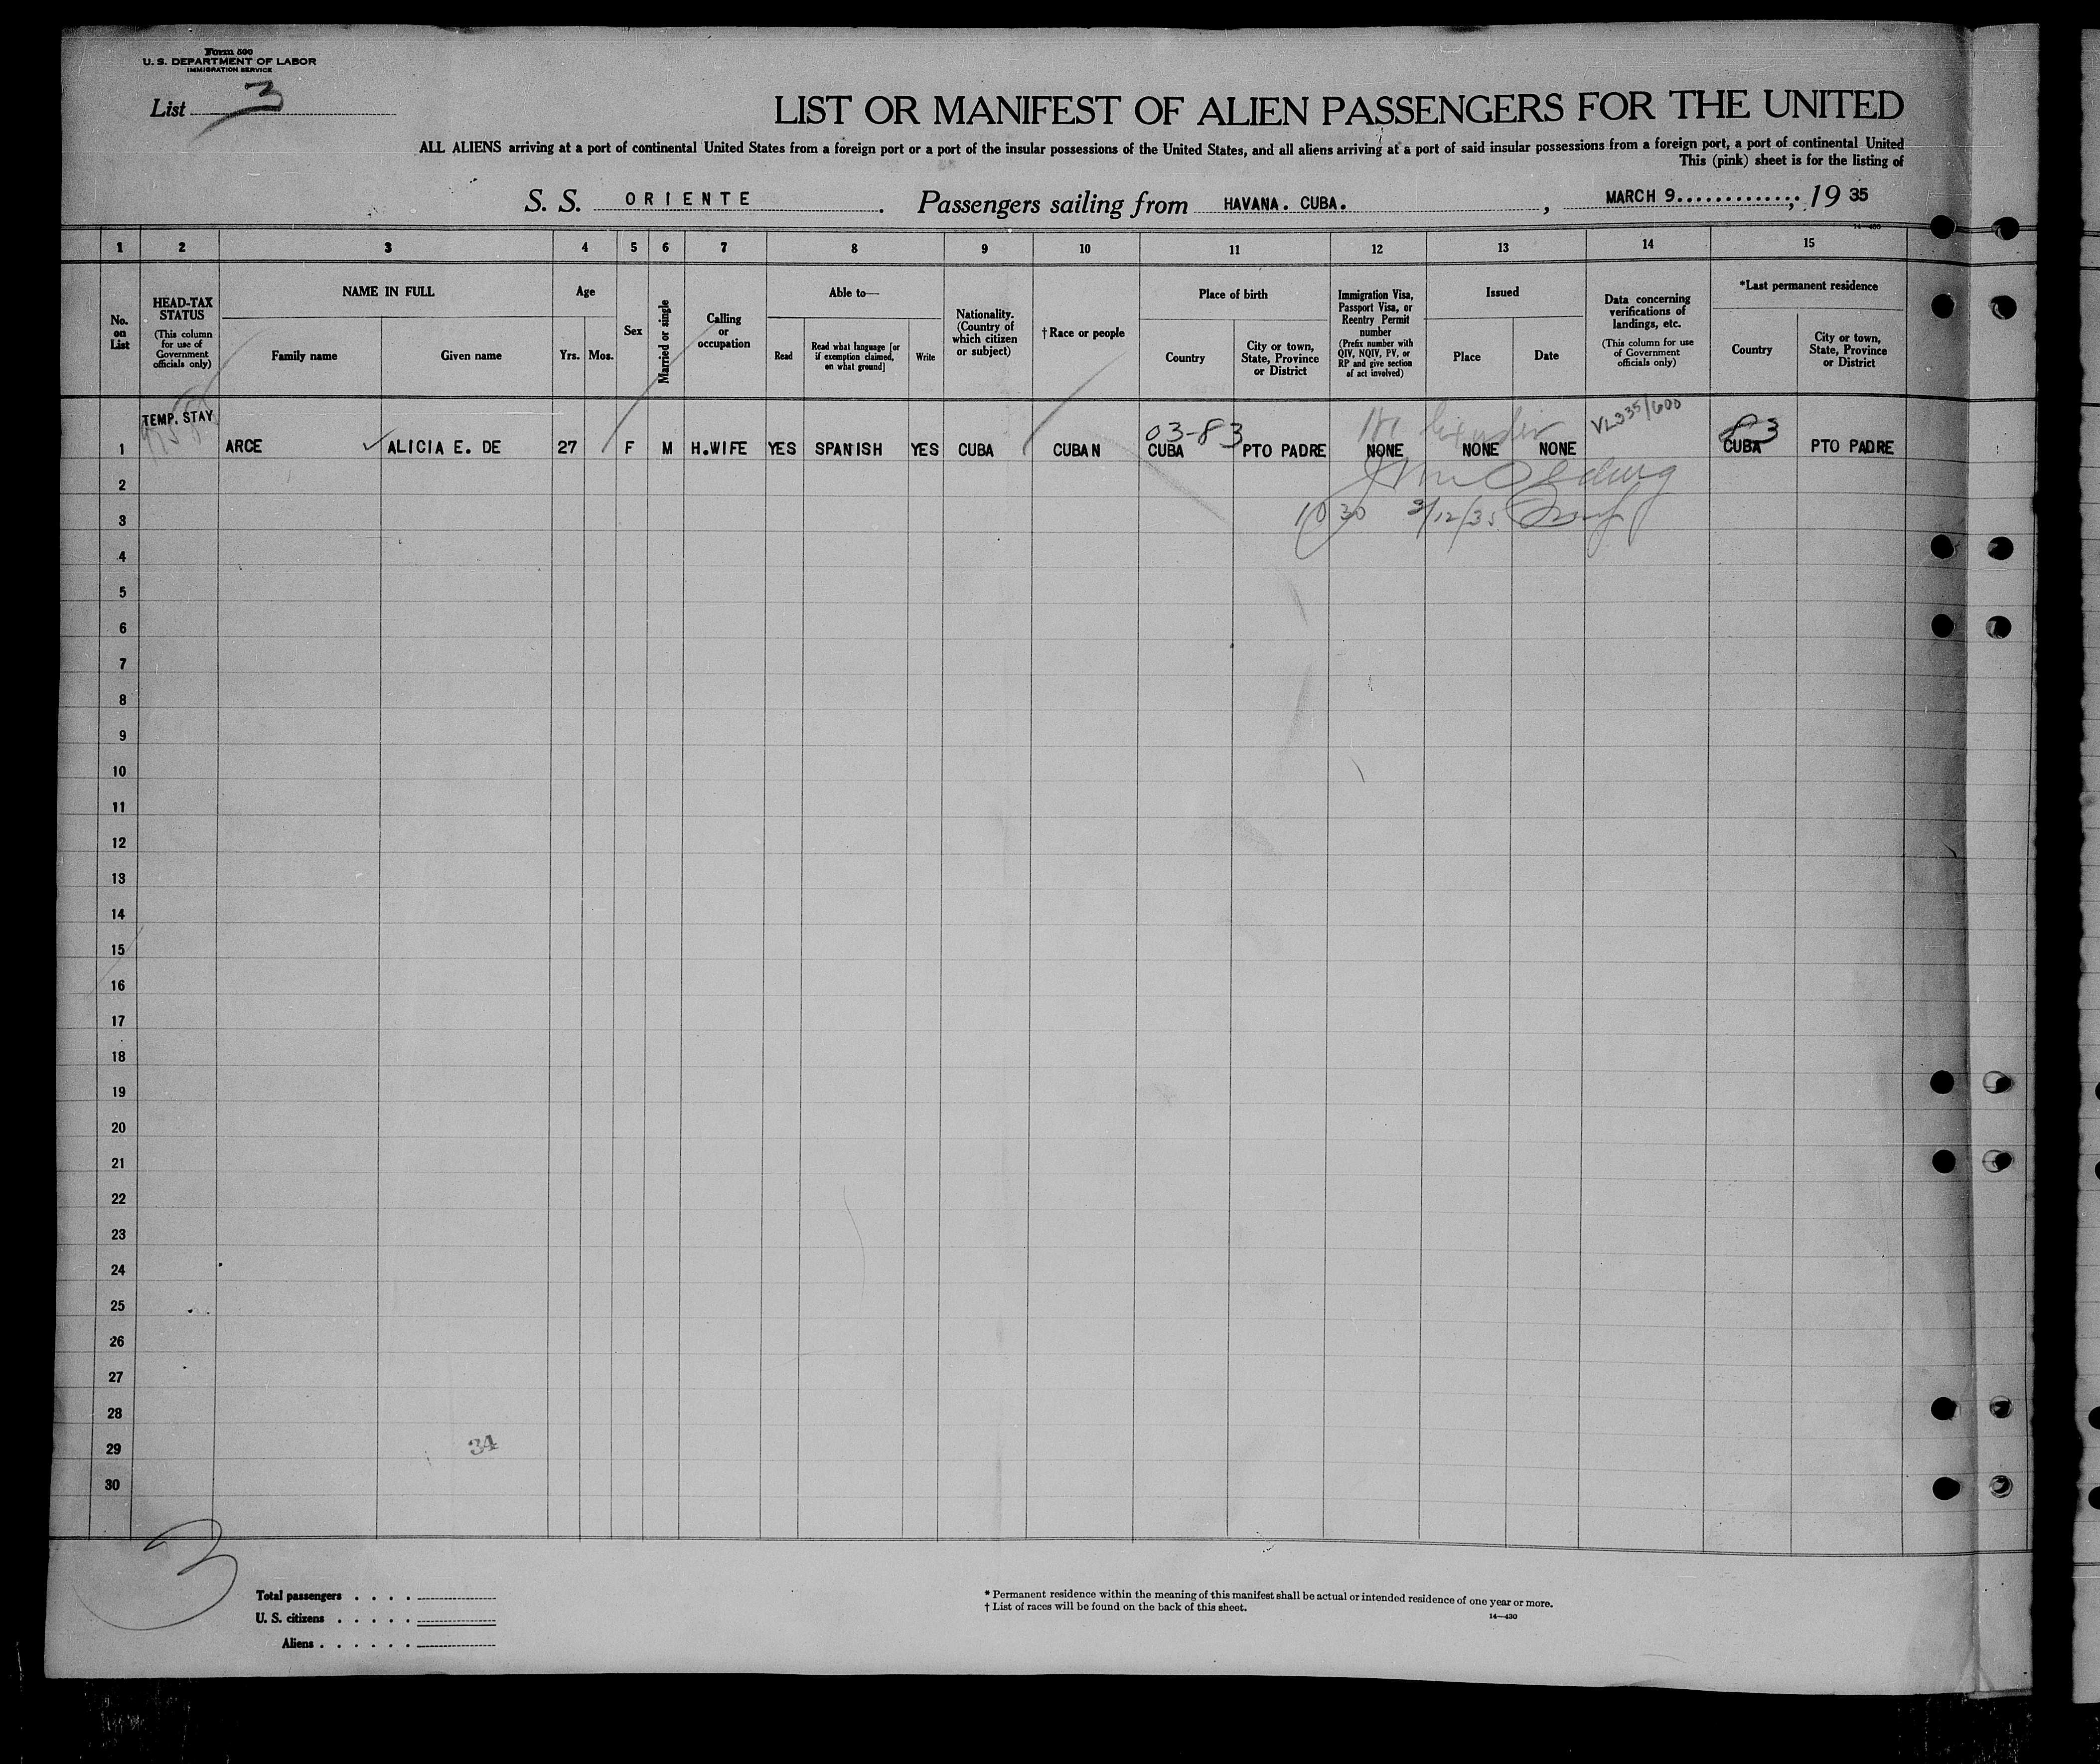 Form 500
U. S. DEPARTMENT OF LABOR
IMMIGRATION SERVICE
List 3
LIST OR MANIFEST OF ALIEN PASSENGERS FOR THE UNITED
ALL ALIENS arriving at a port of continental United States from a foreign port or a port of the insular possessions of the United States, and all aliens arriving at a port of said insular possessions from a foreign port, a port of continental United
This (pink) sheet is for the listing of
S. S. ORIENTE. Passengers sailing from HAVANA. CUBA. , MARCH 9............., 19 35
14—430
1 2 3 4 5 6 7 8 9 10 11 12 13 14 15
No. on List
HEAD-TAX STATUS
(This column for use of Government officials only)
NAME IN FULL
Family name
Given name
Age
Yrs. Mos.
Sex
Married or single
Calling or occupation
Able to—
Read
Read what language [or if exemption claimed, on what ground]
Write
Nationality. (Country of which citizen or subject)
†Race or people
Place of birth
Country
City or town, State, Province or District
Immigration Visa, Passport Visa, or Reentry Permit number
(Prefix number with QIV, NQIV, PV, or RP and give section of act involved)
Issued
Place
Date
Data concerning verifications of landings, etc.
(This column for use of Government officials only)
*Last permanent residence
Country
City or town, State, Province or District
TEMP. STAY
03-83
VL335/600
83
1 ARCE ALICIA E. DE 27 F M H.WIFE YES SPANISH YES CUBA CUBAN CUBA PTO PADRE NONE NONE NONE CUBA PTO PADRE
2
3 10 30 3/12/35
4
5
6
7
8
9
10
11
12
13
14
15
16
17
18
19
20
21
22
23
24
25
26
27
28
29
34
30
3
Total passengers . . . .
U. S. citizens . . . . .
Aliens . . . . . .
* Permanent residence within the meaning of this manifest shall be actual or intended residence of one year or more.
† List of races will be found on the back of this sheet.
14—430